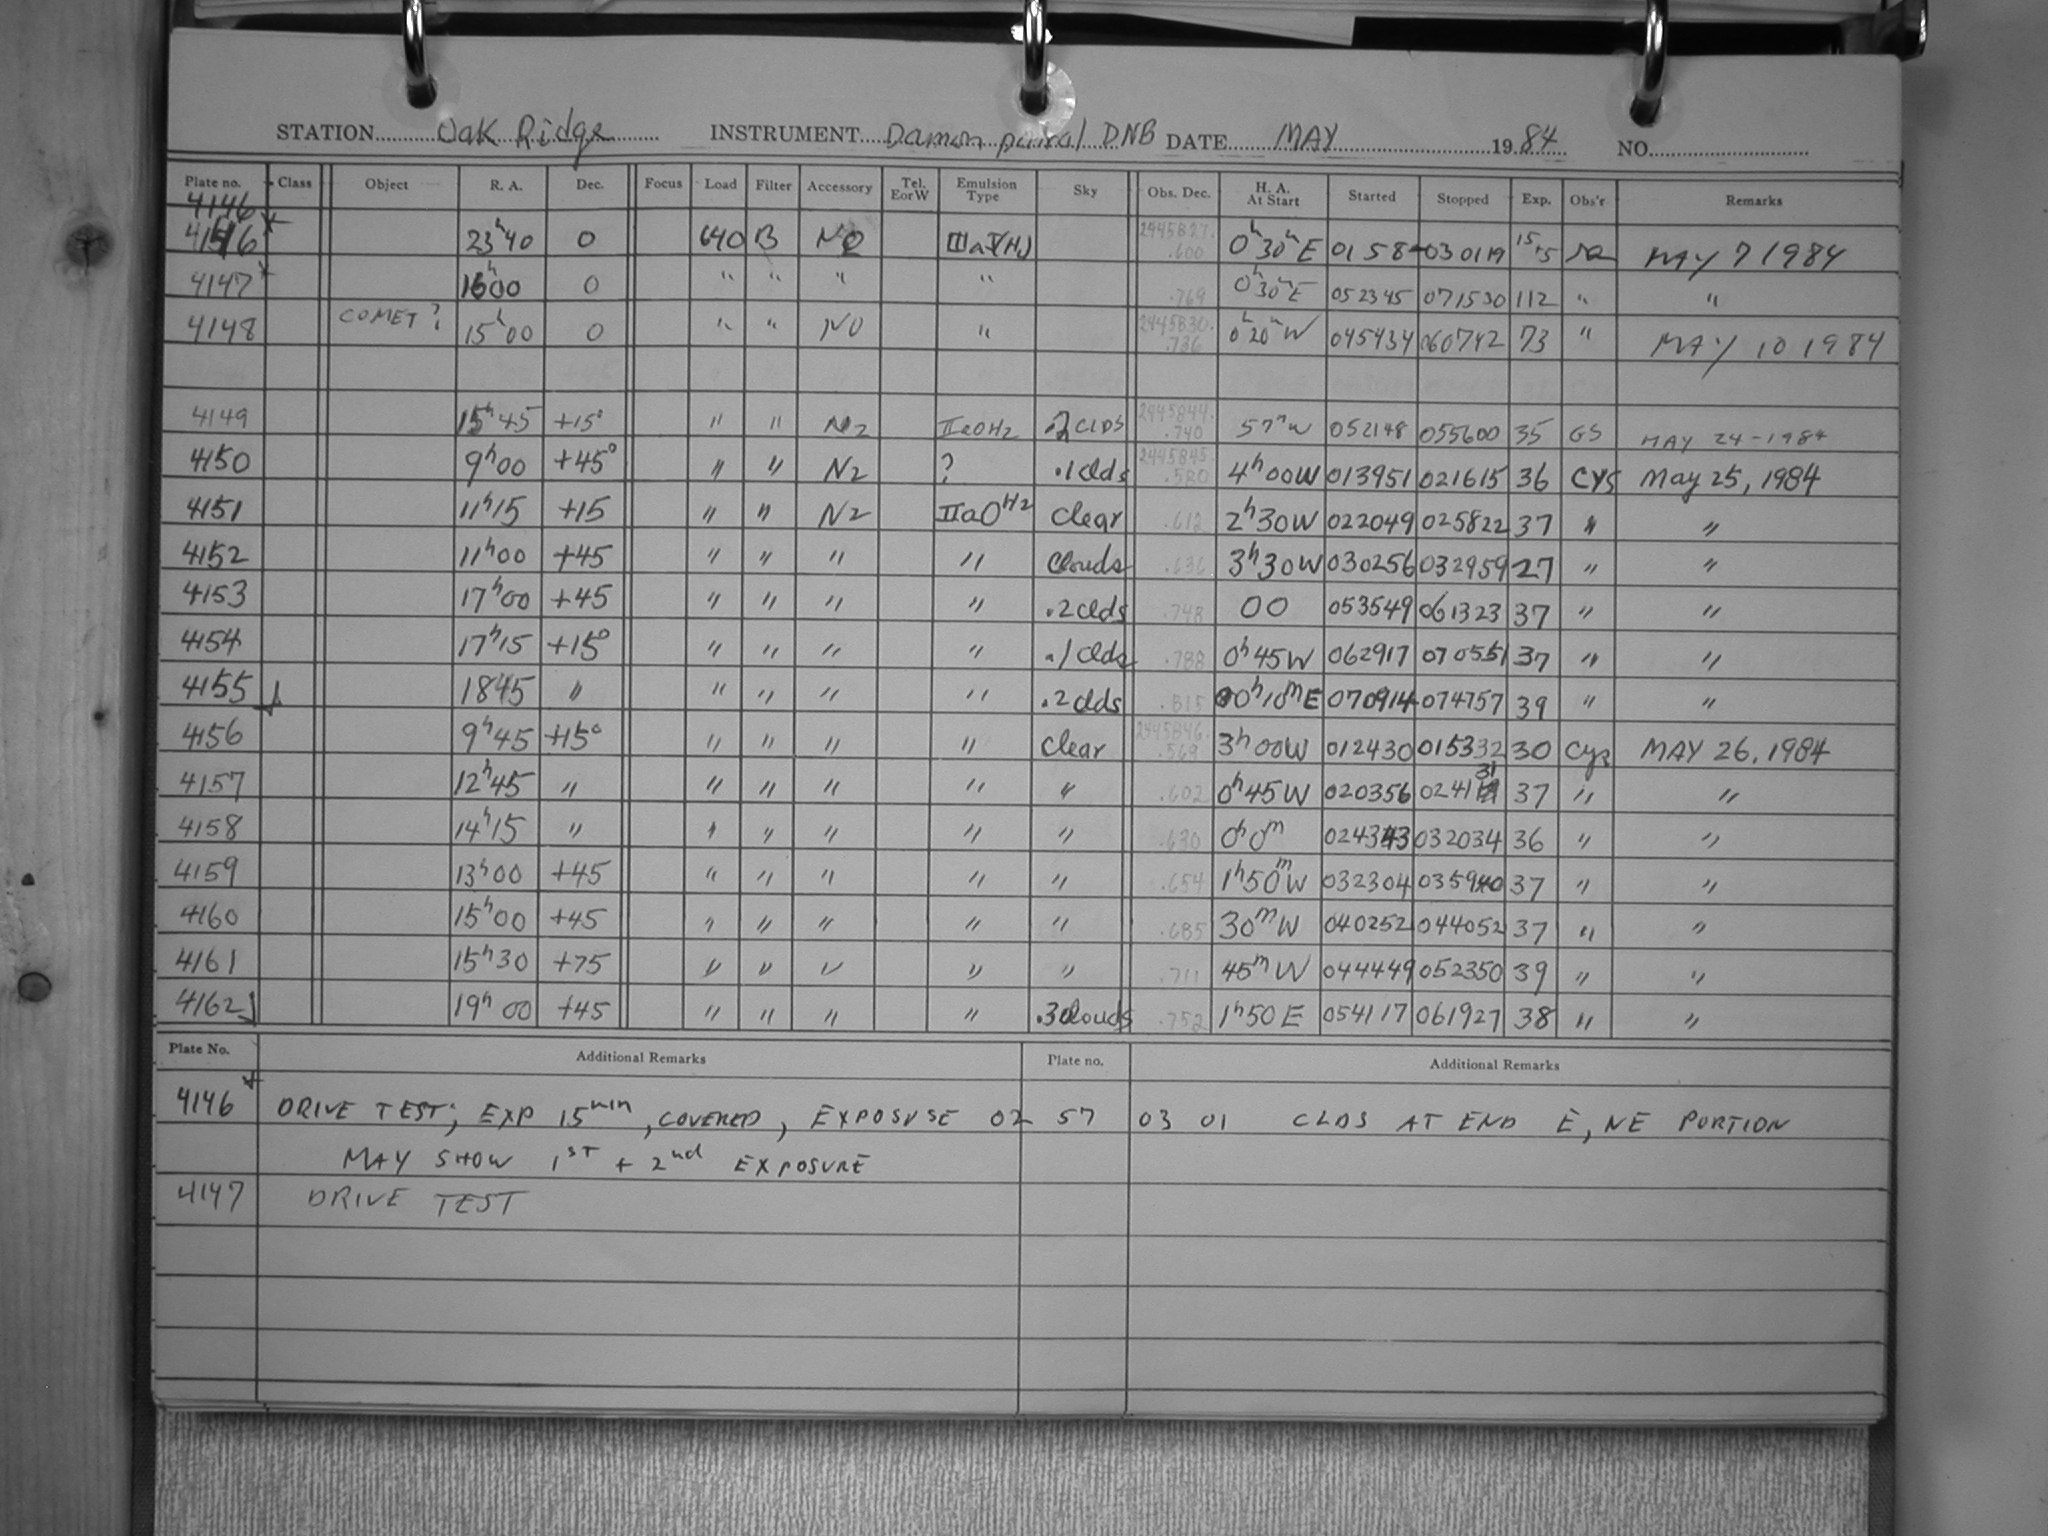 STATION Oak Ridge INSTRUMENT Damon DNB DATE MAY 1984 NO.
Plate no. Class Object R. A. Dec. Focus Load Filter Accessory Tel. E or W Emulsion Type Sky Obs. Dec. H. A. At Start Started Stopped Exp. Obs'r Remarks
4146
4146 23h40 0 640 B N2 2445827. .600 0h30mE 0158 030119 15+5 MAY 7 1984
4147 1600 0 " " " " .769 0h30mE 052345 071530 112 " "
4148 COMET? 15h00 0 " " NO " 2445830. .736 0h20mW 045434 060742 73 " MAY 10 1984
4149 15h45 +15° " " N2 IIaOH2 .2 clds 2445844. .740 57mW 052148 055600 35 GS MAY 24-1984
4150 9h00 +45° " " N2 ? .1 clds 2445845. .580 4h00W 013951 021615 36 CYS May 25, 1984
4151 11h15 +15 " " N2 IIaOH2 Clear .612 2h30W 022049 025822 37 " "
4152 11h00 +45 " " " " Clouds .636 3h30W 030256 032959 27 " "
4153 17h00 +45 " " " " .2 clds .748 00 053549 061323 37 " "
4154 17h15 +15° " " " " .1 clds .788 0h45W 062917 070551 37 " "
4155 1845 " " " " " .2 clds .815 00h10mE 070914 074757 39 " "
4156 9h45 +15° " " " " Clear 2445846. .569 3h00W 012430 015332 30 Cys MAY 26, 1984
4157 12h45 " " " " " " .602 0h45W 020356 024131 37 " "
4158 14h15 " " " " " " .630 0h0m 024343 032034 36 " "
4159 13h00 +45 " " " " " .654 1h50mW 032304 035940 37 " "
4160 15h00 +45 " " " " " .685 30mW 040252 044052 37 " "
4161 15h30 +75 " " " " " .711 45mW 044449 052350 39 " "
4162 19h00 +45 " " " " .3 clouds .752 1h50E 054117 061927 38 " "
Plate No. Additional Remarks Plate no. Additional Remarks
4146 DRIVE TEST; EXP 15min, COVERED, EXPOSUSE 02 57 03 01 CLDS AT END E, NE PORTION
MAY SHOW 1ST + 2nd EXPOSURE
4147 DRIVE TEST